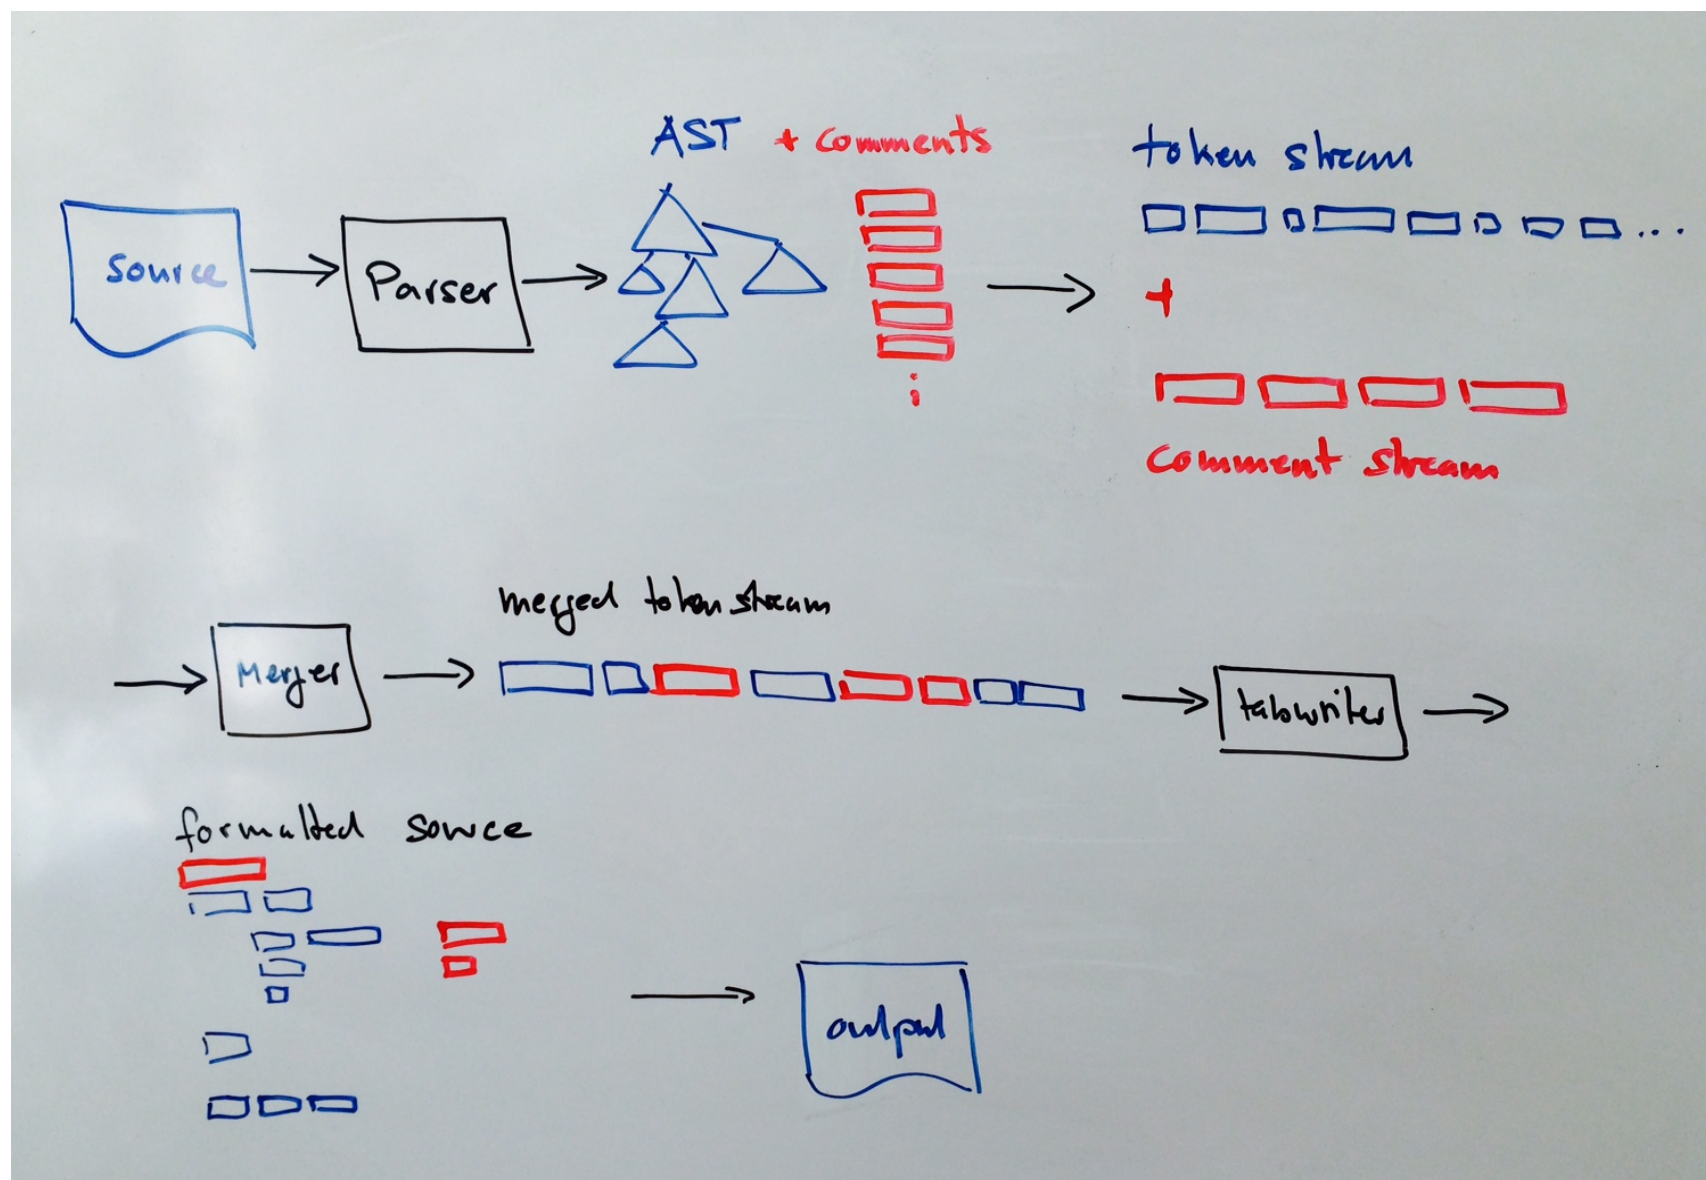 AST + comments
token stream
source
Parser
...
+
comment stream
merged token stream
Merger
tabwriter
formatted source
output